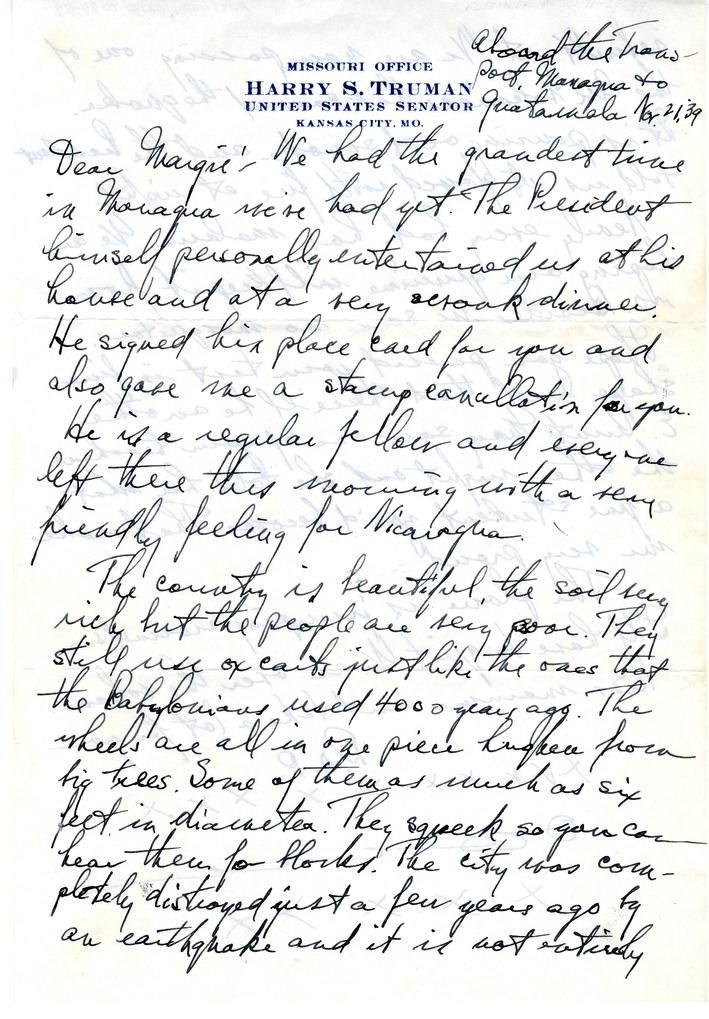 MISSOURI OFFICE
HARRY S. TRUMAN
UNITED STATES SENATOR
KANSAS CITY, MO.
aboard the Trans-
port, Managua to
Guatamala Nov. 21, '39
Dear Margie:- We had the grandest time
in Managua we've had yet. The President
himself personally entertained us at his
house and at a very swank dinner.
He signed his place card for you and
also gave me a stamp cancellation for you.
He is a regular fellow and everyone
left there this morning with a very
friendly feeling for Nicaragua.
The country is beautiful, the soil very
rich but the people are very poor. They
still use ox carts just like the ones that
the Babylonians used 4000 years ago. The
wheels are all in one piece from
big trees. Some of them as much as six
feet in diameter. They squeek so you can
hear them for blocks. The city was com-
pletely distroyed just a few years ago by
an earthquake and it is not entirely